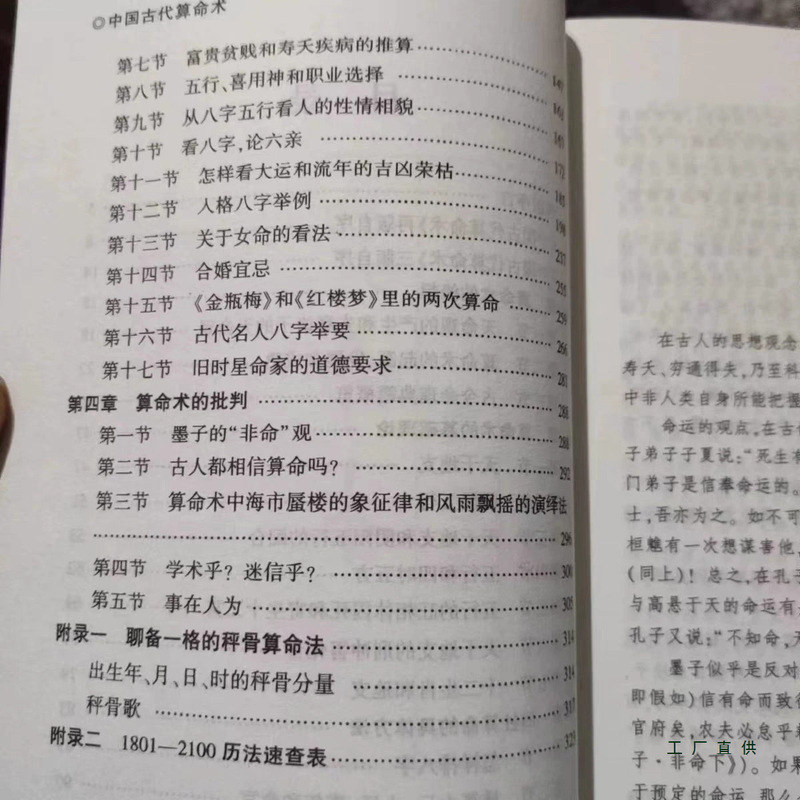 ◎中国古代算命术
第七节 富贵贫贱和寿夭疾病的推算
第八节 五行、喜用神和职业选择
第九节 从八字五行看人的性情相貌
第十节 看八字,论六亲 172
第十一节 怎样看大运和流年的吉凶荣枯 185
第十二节 人格八字举例 198
第十三节 关于女命的看法 237
第十四节 合婚宜忌 255
第十五节 《金瓶梅》和《红楼梦》里的两次算命 259
第十六节 古代名人八字举要 266
第十七节 旧时星命家的道德要求 281
第四章 算命术的批判 288
第一节 墨子的“非命”观 288
第二节 古人都相信算命吗? 292
第三节 算命术中海市蜃楼的象征律和风雨飘摇的演绎法
296
第四节 学术乎?迷信乎? 300
第五节 事在人为 305
附录一 聊备一格的秤骨算命法 314
出生年、月、日、时的秤骨分量 314
秤骨歌 317
附录二 1801—2100历法速查表 323
在古人的思想观念
寿夭、穷通得失,乃至科
中非人类自身所能把握
命运的观点,在古代
子弟子子夏说:“死生有
门弟子是信奉命运的。
士,吾亦为之。如不可
桓魋有一次想谋害他,
(同上)!总之,在孔子
与高悬于天的命运有是
孔子又说:“不知命,无
墨子似乎是反对
即假如)信有命而致行
官府矣,农夫必怠乎耕
子·非命下》)。如果
于预定的命运,那么人
工厂直供